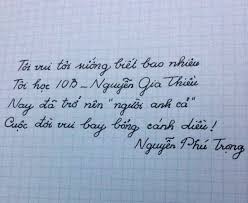 Tôi vui tôi sướng biết bao nhiêu
Tôi học 10B - Nguyễn Gia Thiều
Nay đã trở nên "người anh cả"
Cuộc đời vui bay bổng cánh diều!
Nguyễn Phú Trọng